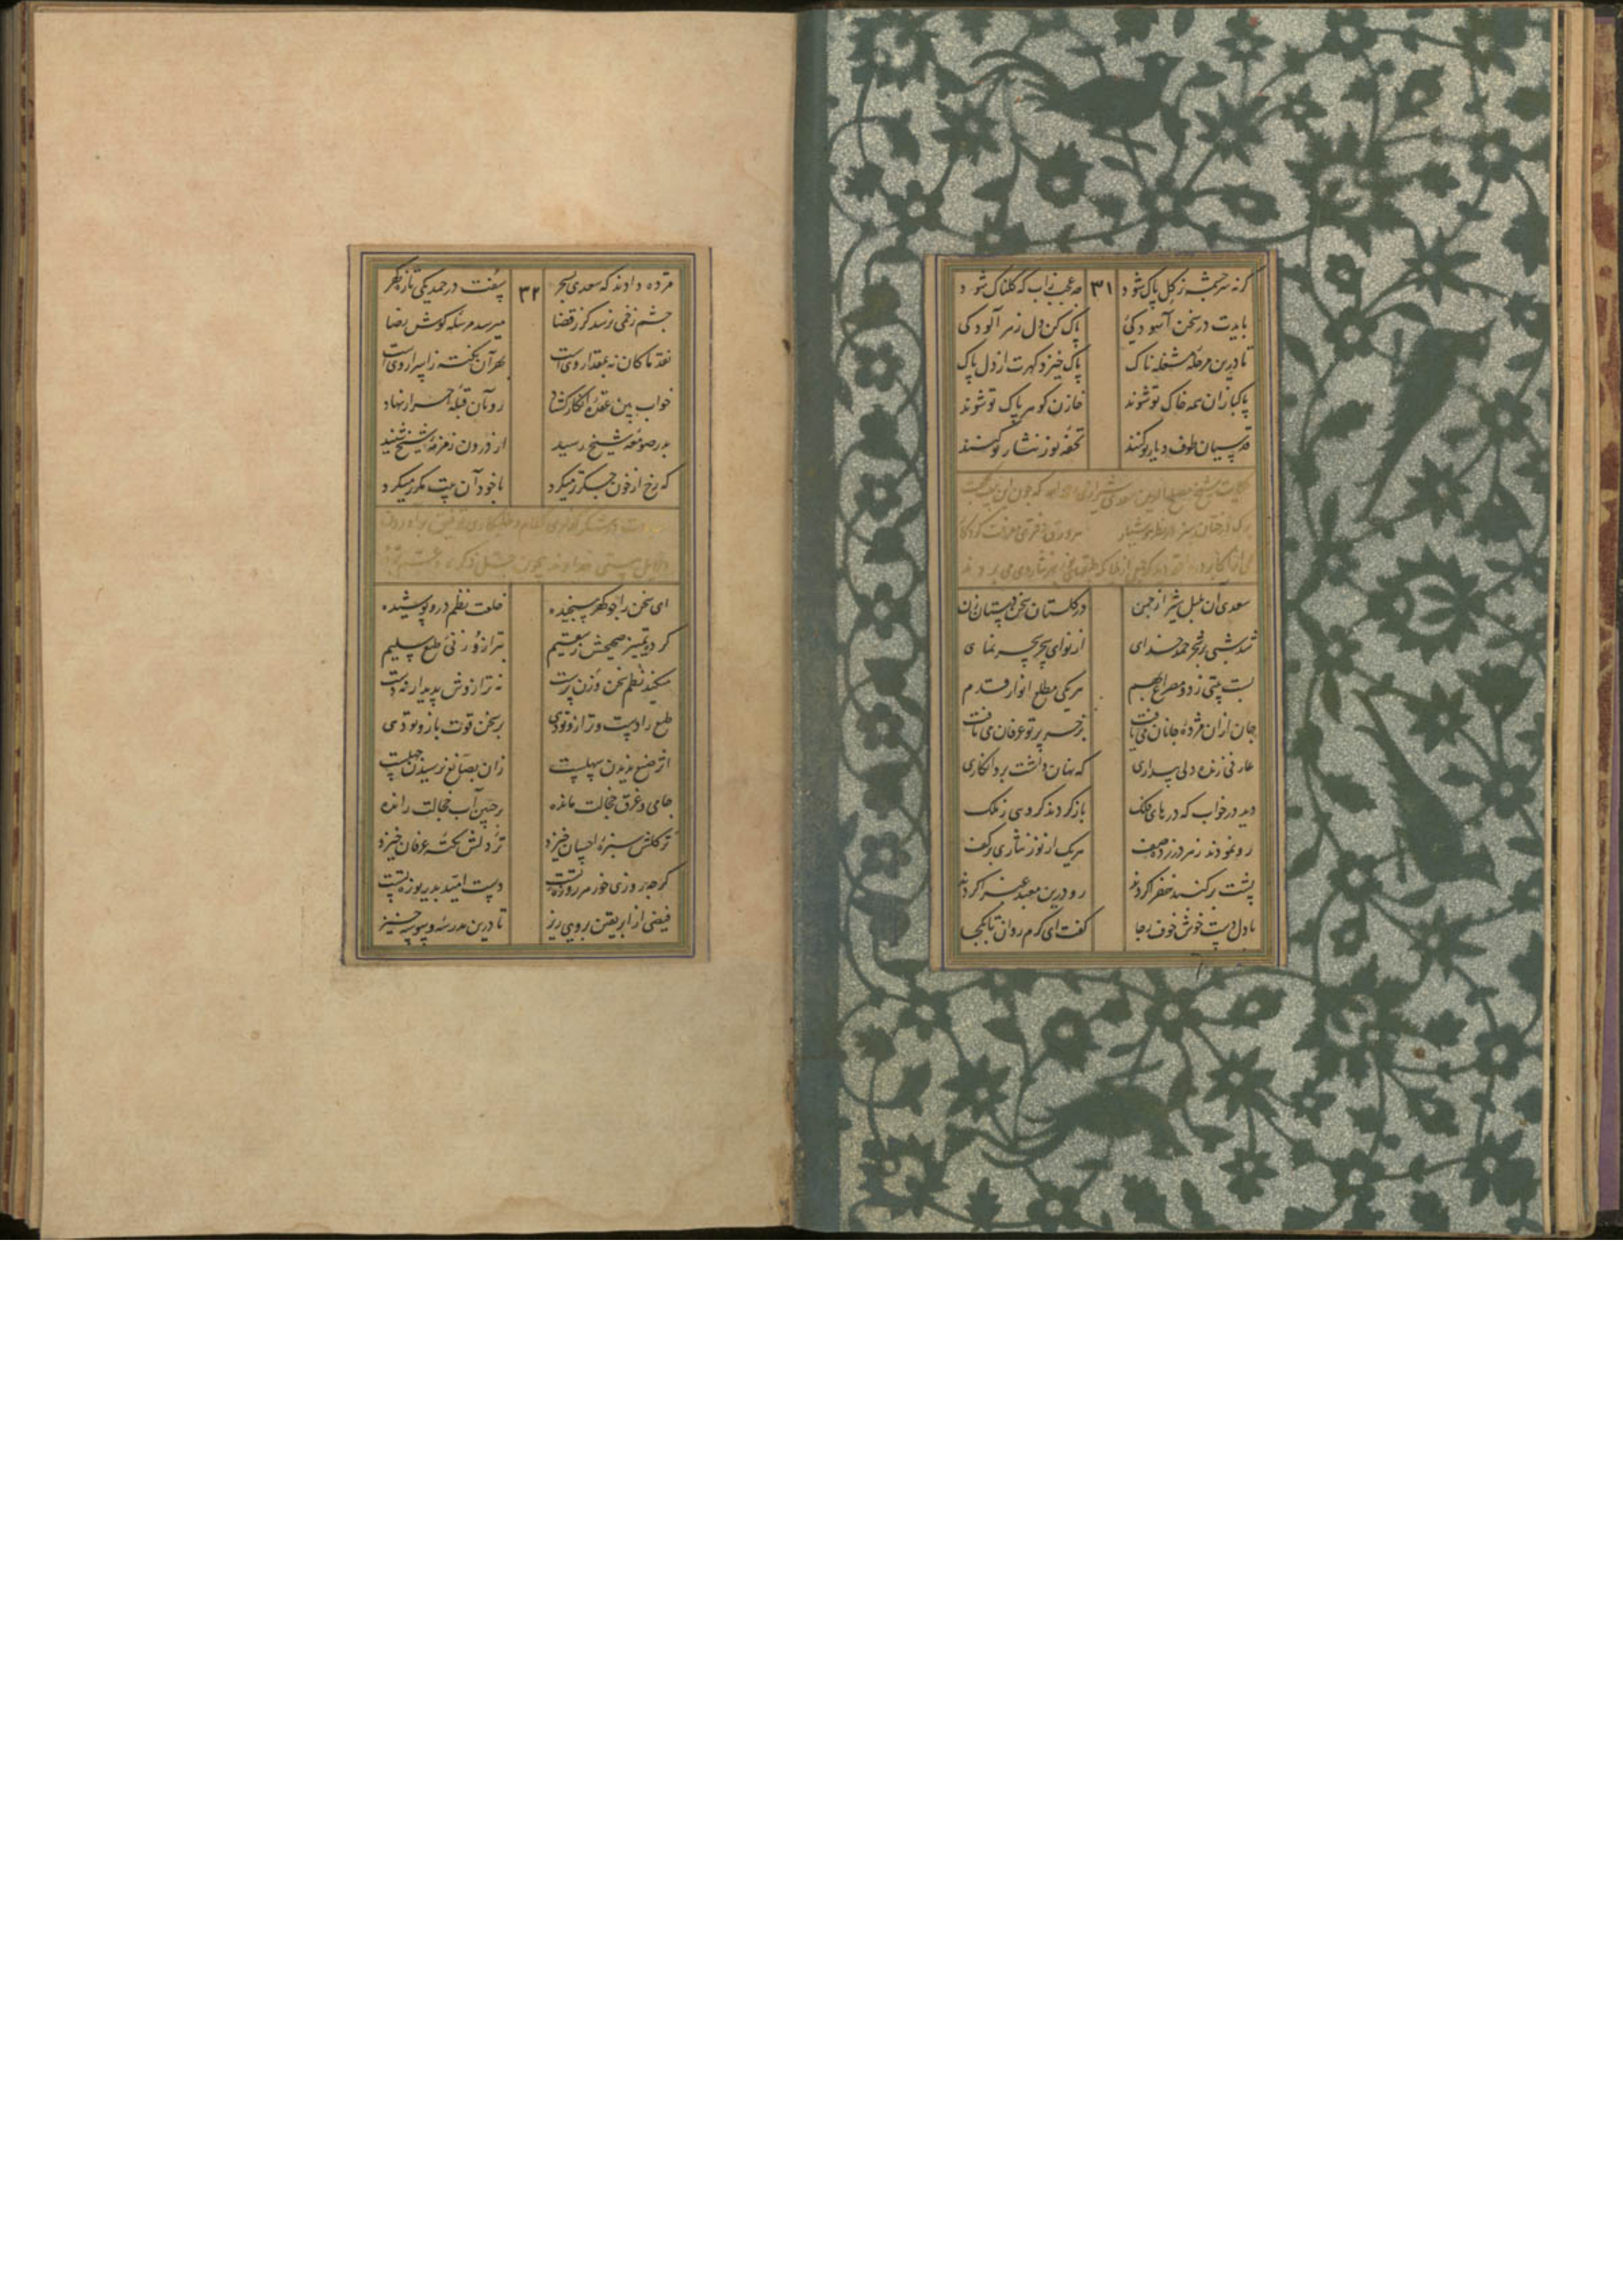 گر نه سرچشمه ز گل پاک شود ۳۱ چه عجب زاب که گلناک شود
بایدت در سخن آسودگی پاک کن دل ز هر آلودگی
تا درین مرحله مشغله ناک پاک خیزد گهرت از دل پاک
پاکبازان همه خاک تو شوند خازن گوهر پاک تو شوند
قدسیان طوف دیار تو کنند تحفه نور نثار تو کنند
حکایت شیخ مصلح الدین سعدی شیرازی که چون این بیت بگفت
برگ درختان سبز در نظر هوشیار هر ورقی دفتری معرفت کردگار
سعدی آن بلبل شیراز چمن در گلستان سخن دستان زن
شد شبی بر شجر حمد خدای از نوای سحری سحر نمای
بست بیتی ز دو مصرع بهم هر یکی مطلع انوار قدم
جان ازان مژده جانان می یافت بر خرد پرتو عرفان می تافت
عارفی زنده دلی بیداری که نهان داشت برو انکاری
دید در خواب که درهای فلک باز کردند گروهی ز ملک
رو نمودند ز هر در زده صف هر یک از نور نثاری بر کف
پشت بر گنبد خضرا کردند رو درین معبد غبرا کردند
با دل دست خوش خوف و رجا گفت ای گرم روان تا بکجا
مژده دادند که سعدی بسحر ۳۲ سفت در حمد یکی تازه گهر
چشم زخمی نرسد گر ز قضا میرسد مرسله گوش رضا
نقد ما کان نه بمقدار وی است بهر آن نکته ز اسرار وی است
خواب بین عقده انکار گشاد رو بآن قبله احرار نهاد
بدر صومعه شیخ رسید از درون زمزمه شیخ شنید
که رخ از خون جگر تر میکرد با خود آن بیت مکرر میکرد
ای سخن را چو گهر سنجیده خلعت نظم درو پوشیده
کرده تمییز صحیحش ز سقیم بترازوزنی طبع سلیم
میکند نظم سخن وزن پرست نه ترازوش پدیدار نه دست
طبع را دست و ترازو تو دهی بر سخن قوت بازو تو دهی
از صنع ندیدن سهلست زان بصانع نرسیدن جهلست
جامی و غرق خجالت مانده بر جبین آب خجالت رانده
ز گلش سبزه احسان خیزد ز دلش نکته عرفان خیزد
گر چه روزی خور هر روزه تست دست امید بدریوزه تست
فیضی از ابر یقین بر وی ریز تا درین مدرسه وسوسه خیز